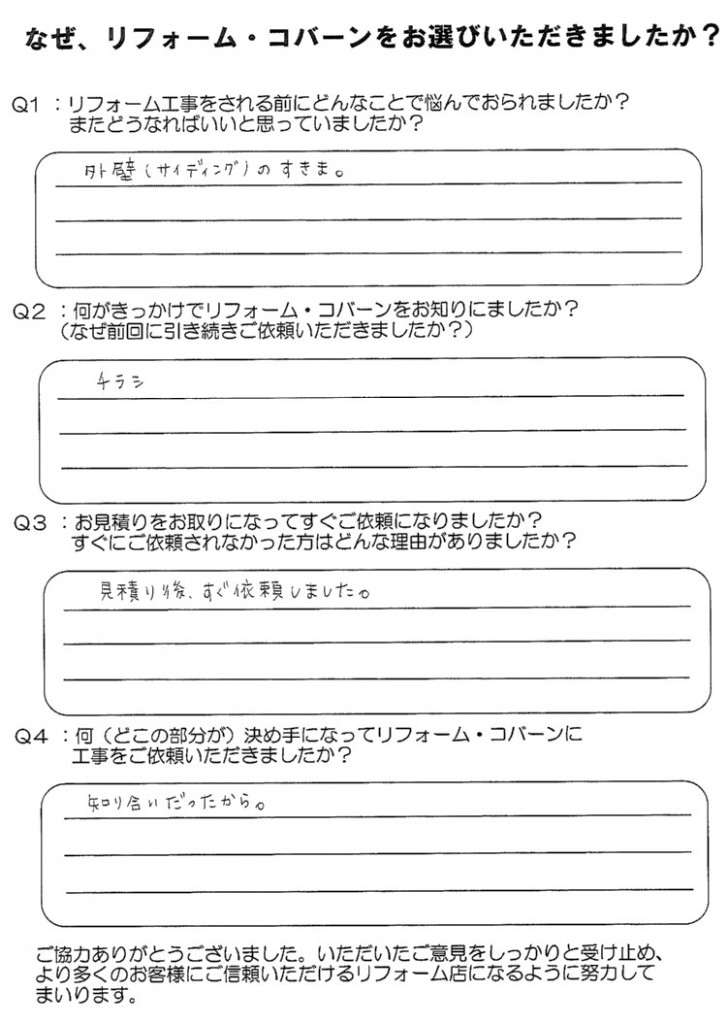 なぜ、リフォーム・コバーンをお選びいただきましたか？
Q1 ：リフォーム工事をされる前にどんなことで悩んでおられましたか？
またどうなればいいと思っていましたか？
外壁（サイディング）のすきま。
Q2 ：何がきっかけでリフォーム・コバーンをお知りにましたか？
（なぜ前回に引き続きご依頼いただきましたか？）
チラシ
Q3 ：お見積りをお取りになってすぐご依頼になりましたか？
すぐにご依頼されなかった方はどんな理由がありましたか？
見積り後、すぐ依頼しました。
Q4 ：何（どこの部分が）決め手になってリフォーム・コバーンに
工事をご依頼いただきましたか？
知り合いだったから。
ご協力ありがとうございました。いただいたご意見をしっかりと受け止め、
より多くのお客様にご信頼いただけるリフォーム店になるように努力して
まいります。